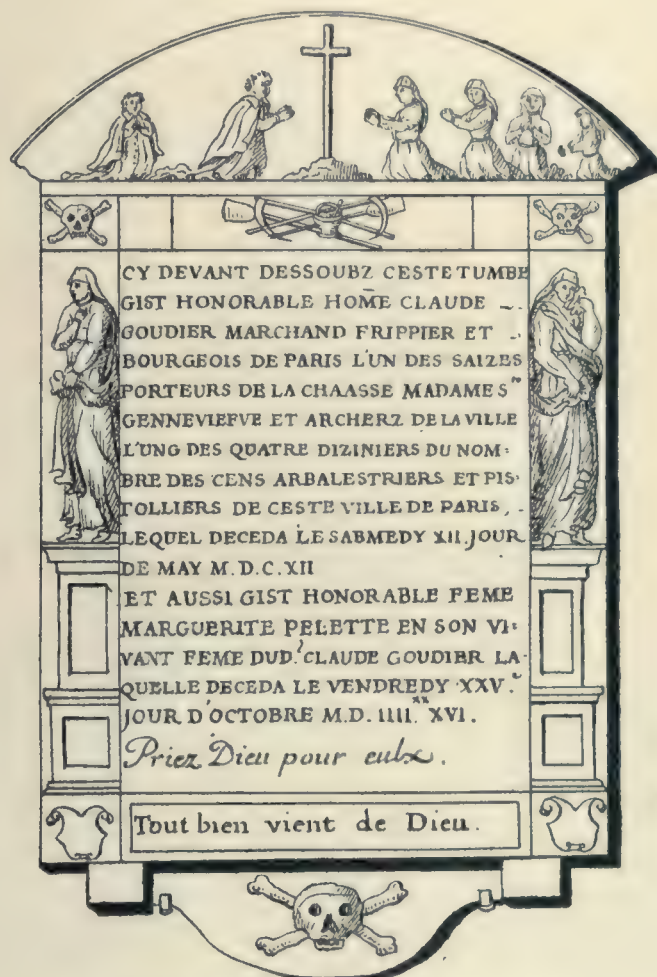 CY DEVANT DESSOUBZ CESTE TUMBE
GIST HONORABLE HOM̄E CLAUDE
GOUDIER MARCHAND FRIPPIER ET
BOURGEOIS DE PARIS L'UN DES SAIZES
PORTEURS DE LA CHAASSE MADAME Sᵗᵉ
GENNEVIEFVE ET ARCHERZ DE LA VILLE
L'UNG DES QUATRE DIZINIERS DU NOM-
BRE DES CENS ARBALESTRIERS ET PIS-
TOLLIERS DE CESTE VILLE DE PARIS,
LEQUEL DECEDA LE SABMEDY XII. JOUR
DE MAY M.D.C.XII
ET AUSSI GIST HONORABLE FEME
MARGUERITE PELETTE EN SON VI-
VANT FEME DUD.ᵗ CLAUDE GOUDIER LA-
QUELLE DECEDA LE VENDREDY XXV.ᵉ
JOUR D'OCTOBRE M.D.IIII.ˣˣ XVI.
Priez Dieu pour eulx.
Tout bien vient de Dieu.